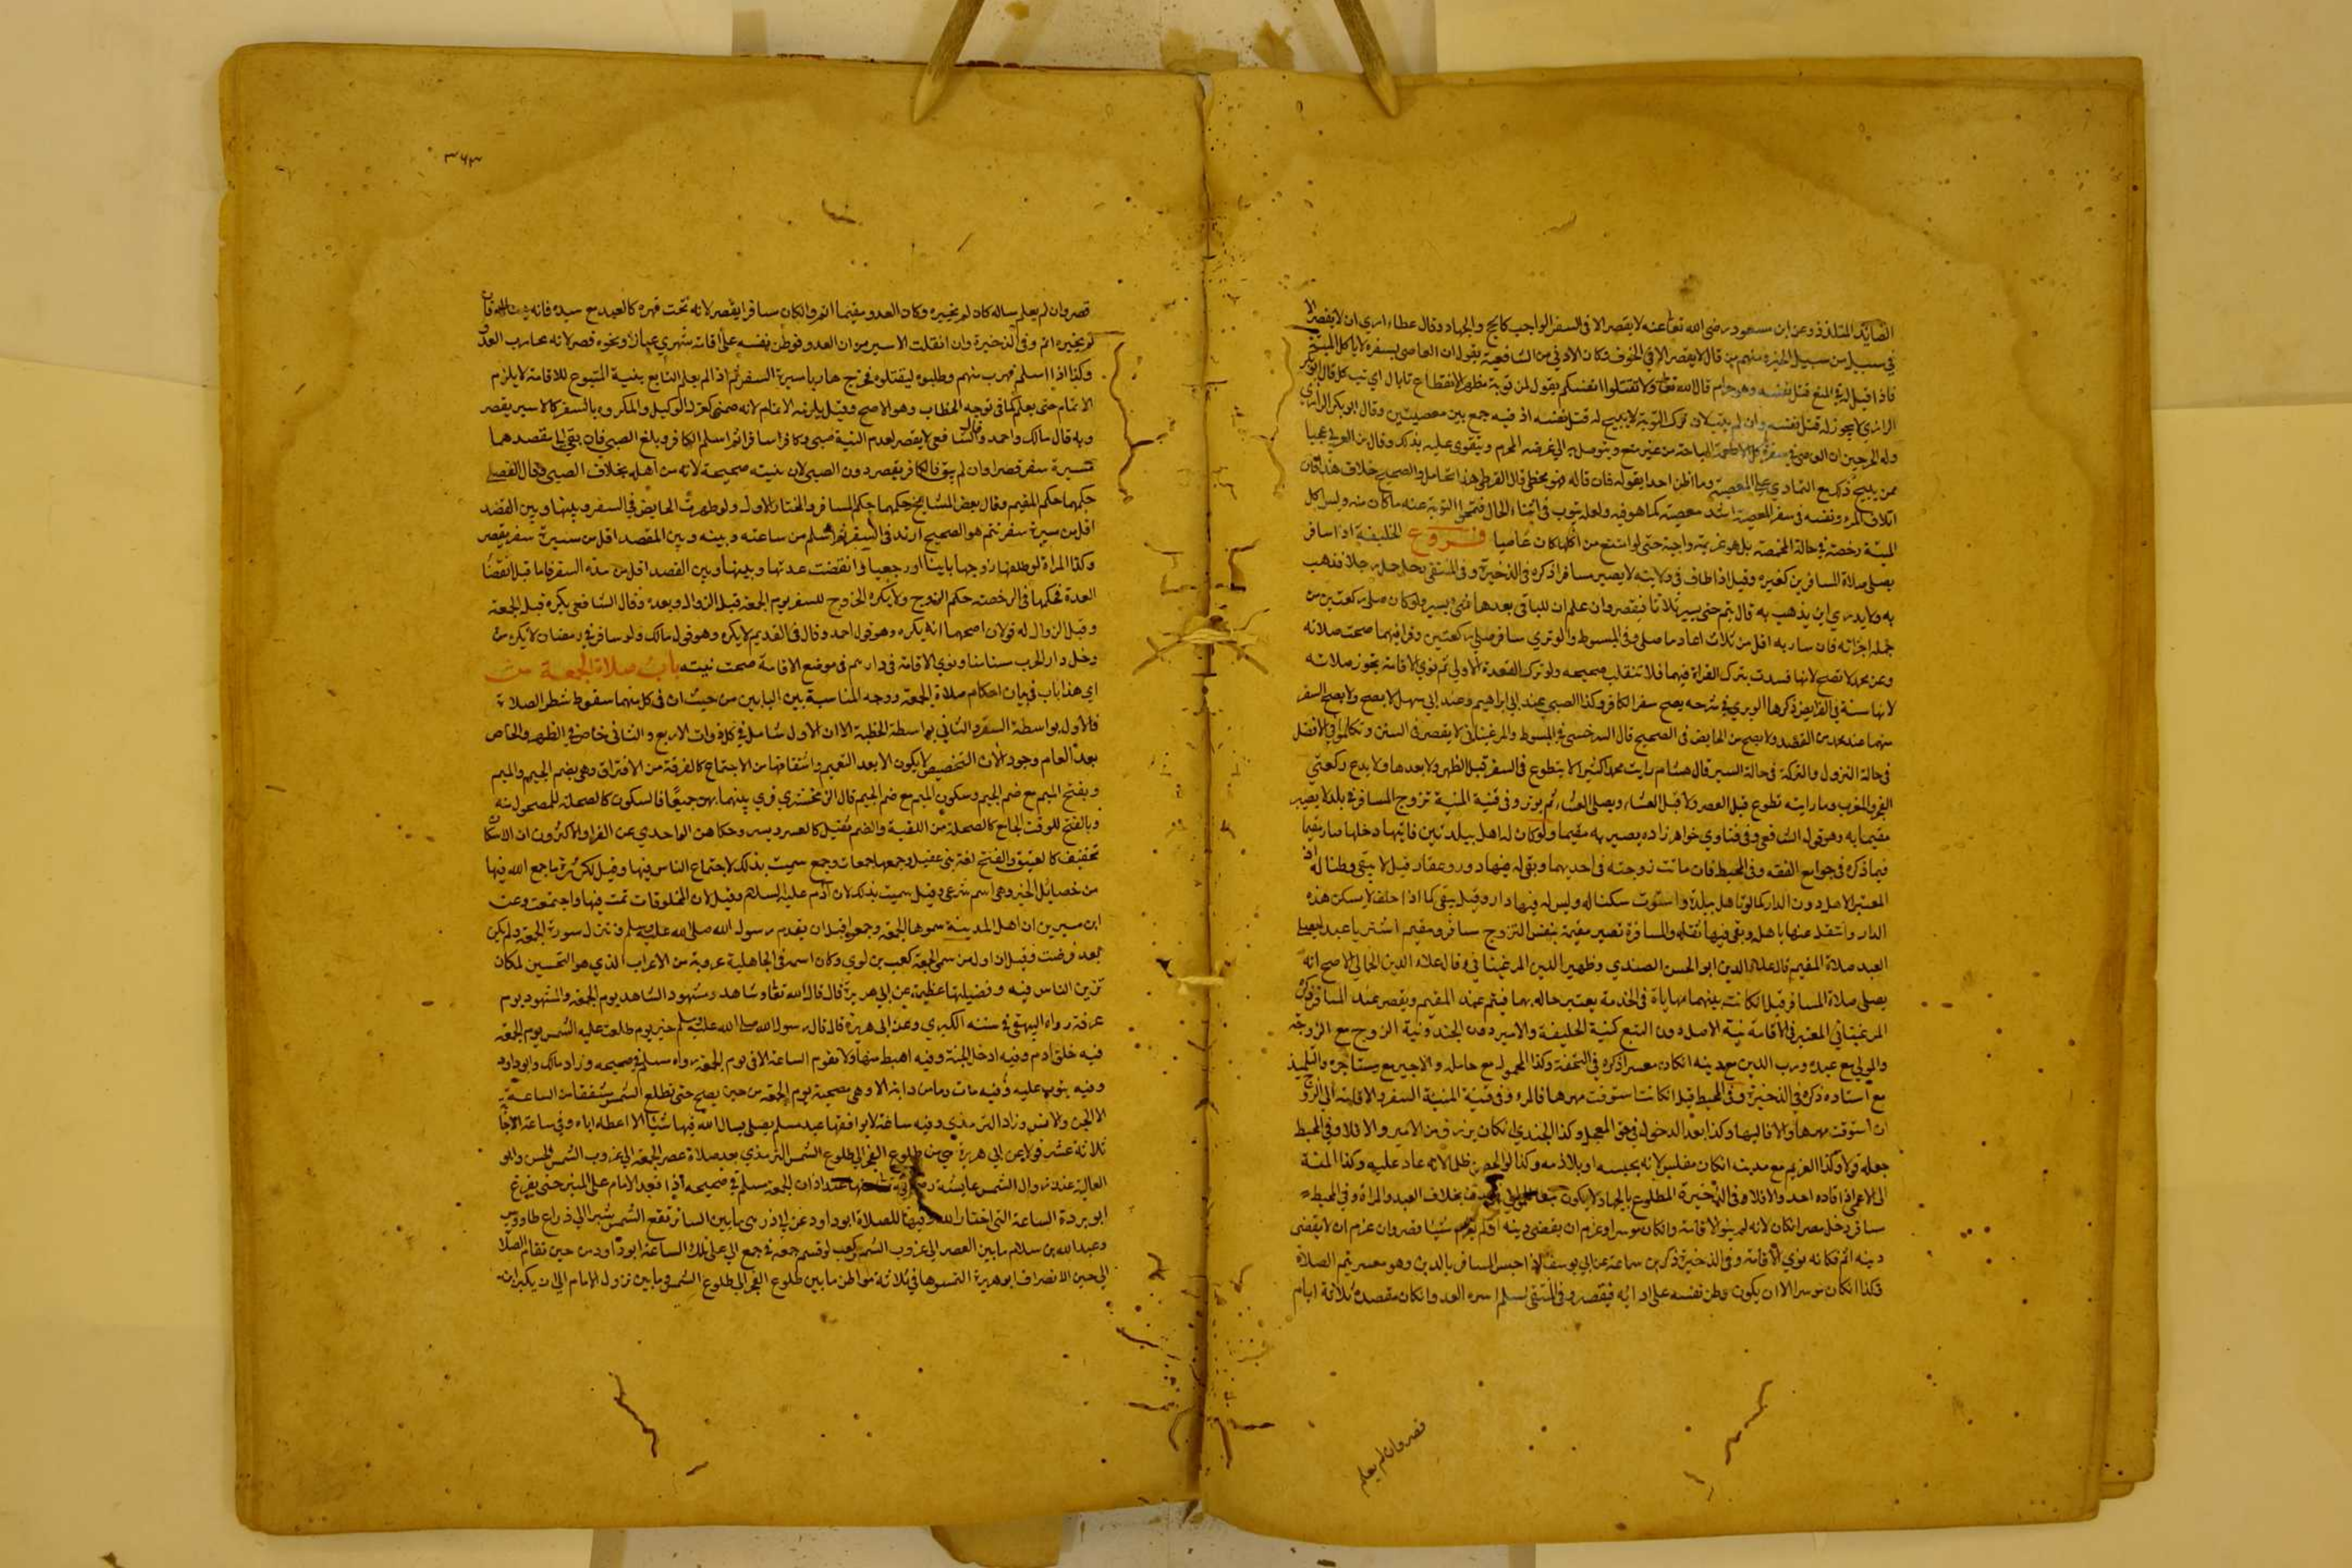 الصايد المتلذذ وعن ابن مسعود رضي الله تعا عنه لا يقصر الا في السفر الواجب كالحج والجهاد وقال عطاء اري ان لا يقصر الا
في سبيل من سبيل الخير ومنهم من قال لا يقصر الا في الخوف وكان الادفي من الشافعية يقول ان العاصي بسفره لا ياكل الميتة
فاذا قيل له في المنع قتل نفسه وهو حرام قال الله تعا ولا تقتلوا انفسكم يقول لمن توبة مظهر لانقطاع تا بال اي تب كل قال ابوبكر
الرازي لا يجوز له قتل نفسه وان لم يتب لان ترك التوبة لا يبيح له قتل نفسه اذ فيه جمع بين معصيتين وقال ابو بكر الرازي
وله الخرجين ان العاصي في سفره ياكل الاطعمة المباحة من غير منع ويتوصل به الي غرضه المحرم ويتقوى عليه بذلك وقال بن العربي عجبا
ممن يبيح ذلك مع التمادي علي المعصية وما اظن احدا يقوله فان قاله فهو مخطئ قال القرطبي هذا تحامل والصحيح خلاف هذا فان
اتلاف المرء ونفسه في سفر المعصية اشد معصية مما هو فيه ولعله يتوب في اثناء الحال فتمحوا التوبة عنه ما كان منه وليس اكل
الميتة رخصة في حالة المخمصة بل هو عزيمة واجبة حتى لو امتنع من اكلها كان عاصيا فروع الخليفة اذا سافر
يصلي صلاة المسافرين كغيره وقيل اذا طاف في ولايته لا يصير مسافرا ذكره في الذخيرة وفي المنتقى رجل حمل رجلا فذهب
به ولا يدري اين يذهب به قال يتم حتى يسير ثلاثا فيقصر وان علم ان الباقي بعدها شيئ يسير ولو كان صلى ركعتين من
حمله اجزاته فان سار به اقل من ثلاث اعاد ما صلى وفي المبسوط والوتري سافر صلي ركعتين وقرا فيهما صحت صلاته
وعن محمد لا تصح لانها فسدت بترك القراة فيهما فلا تنقلب صحيحه ولو ترك القعدة الاولي ثم نوي الاقامة يجوز صلاته
لانها سنة في الفرايض ذكرها الوبري في شرحه يصح سفر الكافر وكذا الصبي عند ابي ابراهيم وعند ابي سهل لا يصح ولا يصح السفر
منهما عند محمد من القصد ولا يصح من الحايض في الصحيح قال السرخسي في المبسوط والمرغيناني لا يقصر في السنن وتكلموا في الافضل
في حالة النزول والترك في حالة السير قال هشام رايت محمدا كثيرا لا يتطوع في السفر قبل الظهر ولا بعدها ولا يدع ركعتي
الفجر والمغرب وما رايته تطوع قبل العصر ولا قبل العشاء ويصلي العشاء ثم يوتر وفي قنية المنية تزوج المسافر في بلد لا يصير
مقيما به وهو قول الشافعي وفي فتاوي خواهر زاده يصير به مقيما ولو كان له اهل ببلدتين فايتها دخلها صار مقيما
فيما ذكره في جوامع الفقه وفي المحيط فان ماتت زوجته في احديهما وبقي له فيها دور وعقار قيل لا يبقى وطنا له اذ
المعتبر الاهل دون الدار كما لو تاهل ببلدة واستوت سكنا له وليس له فيها دار وقيل يبقى كما اذا حلف لا يسكن هذه
الدار وانتقل عنها باهله وبقي فيها ثقله والمسافرة تصير مقيمة بنفس التزوج مسافر ومقيم اشتريا عبدا يصلي
العبد صلاة المقيم قال علاء الدين ابو الحسن الصندي وظهير الدين المرغيناني وقال علاء الدين الحمالي الاصح انه
يصلي صلاة المسافر قيل ان كانت بينهما مهاياة في الخدمة يعتبر حاله بها فيتم عند المقيم ويقصر عند المسافر ذكره
المرغيناني المعتبر في الاقامة نية الاصل دون التبع كنية الخليفة والامير دون الجند ونية الزوج مع الزوجة
والمولى مع عبده ورب الدين مع مدينه ان كان معسرا ذكره في التحفة وكذا المحمول مع حامله والاجير مع مستاجره والتلميذ
مع استاده ذكره في الذخيرة وفي المحيط قيل ان كانت استوفت مهرها فالمره وفي قنية المنية السفر والاقامة الي الزوج
ان استوفت مهرها والا فاليها وكذا بعد الدخول في حق المعجل وكذا الجندي ان كان يرزق من الامير والا فلا وفي المحيط
جعله قولا وكذا الغريم مع مدينه ان كان مفلس لانه يحبسه او يلازمه وكذا لو احصر ظلما لانه عاد عليه وكذا المنة
الي الاعمى اذا قاده احد والا فلا وفي الذخيرة المتطوع بالجهاد لا يكون تبعا للوالي بخلاف العبد والمراة وفي المحيط
سافر دخل مصرا ان كان لانه لم ينو الاقامة وان كان موسرا وعزم ان يقضي دينه او لم يعزم شيا قصر وان عزم ان لا يقضي
دينه اتم فكانه نوي الاقامة وفي الذخيرة ذكر بن سماعة عن ابي يوسف اذا حبس المسافر بالدين وهو معسر يتم الصلاة
وكذا ان كان موسرا الا ان يكون وطن نفسه على ادائه فيقصر وفي المنتقى مسلم اسره العدو ان كان مقصده ثلاثة ايام
قصر وان لم يعلم
٣٦٣
قصر وان لم يعلم ساله كان لم يخبره وكان العدو مقيما اتم وان كان مسافرا يقصر لانه تحت قهره كالعبد مع سيده فانه يساله فان
لم يخبره اتم وفي الذخيرة وان انفلت الاسير من ان العدو فوطن نفسه على اقامة شهر في غار ونحوه قصر لانه محارب العدو
وكذا اذا اسلم فهرب منهم وطلبوه ليقتلوه فخرج هاربا مسيرة السفر ثم اذا لم يعلم التابع بنية المتبوع للاقامة لا يلزمه
الاتمام حتى يعلم كما في توجه الخطاب وهو الاصح وقيل يلزمه الاتمام لانه ضمني كعزل الوكيل والمكروه بالسفر كالاسير يقصر
وبه قال مالك واحمد وقال الشافعي لا يقصر لعدم النية صبي وكافر سافرا ثم اسلم الكافر وبلغ الصبي فان بقي الى مقصدهما
مسيرة سفر قصرا وان لم يبق فالكافر يقصر دون الصبي لان نيته صحيحة لانه من اهله بخلاف الصبي وقال الفضلي
حكمهما حكم المقيم وقال بعض المشايخ حكمهما حكم المسافر والمختار الاول ولو طهرت الحايض في السفر وبينها وبين القصد
اقل من مسيرة سفر تتم هو الصحيح ارتد في السفر ثم اسلم من ساعته وبينه وبين المقصد اقل من مسيرة سفر يقصر
وكذا المراة لو طلقها زوجها باينا او رجعيا وانقضت عدتها وبينها وبين القصد اقل من مدة السفر فاما قبل انقضا
العدة فحكمها في الرخصة حكم الزوج ولا يكره الخروج للسفر يوم الجمعة قبل الزوال وبعده وقال الشافعي يكره قبل الجمعة
وقبل الزوال له قولان اصحهما انه يكره وهو قول احمد وقال في القديم لا يكره وهو قول مالك ولو سافر في رمضان لا يكره من
دخل دار الحرب مستامنا ونوي الاقامة في دارهم في موضع الاقامة صحت نيته باب صلاة الجمعة ش
اي هذا باب في بيان احكام صلاة الجمعة ووجه المناسبة بين البابين من حيث ان في كل منهما سقوط شطر الصلاة
فالاول بواسطة السفر والثاني بواسطة الخطبة الا ان الاول شامل في كل ذوات الاربع والثاني خاص في الظهر والخاص
بعد العام وجودا لان التخصيص لا يكون الا بعد التعميم واشتقاقها من الاجتماع كالفرقة من الافتراق وهي بضم الجيم والميم
وبفتح الميم مع ضم الجيم وسكون الميم مع ضم الجيم قال الزمخشري قري بينهما بهن جميعا فالسكون كالضحكة للمضحوك منه
وبالفتح للوقت الجامع كالضحكة من اللقبة والضم تثقيل كالعسر ويسر وحكاهن الواحدي عن الفرا والاكثرون ان الاسكان
تخفيف كالعتيق والفتح لغة بني عقيل وجمعها جمعات وجمع سميت بذلك لاجتماع الناس فيها وقيل لكثرة ما جمع الله فيها
من خصائل الخير وهي اسم شرعي وقيل سميت بذلك لان آدم عليه السلام وقيل لان المخلوقات تمت فيها واجتمعت وعن
ابن سيرين ان اهل المدينة سموها الجمعة وجمعوا قبل ان يقدم رسول الله صلى الله عليه وسلم وتنزل سورة الجمعة ولم يكن
بعد فرضت وقيل ان اول من سمى الجمعة كعب بن لوي وكان اسمه في الجاهلية عروبة من الاعراب الذي هو التحسين لمكان
تزين الناس فيه وفضيلتها عظيمة عن ابي هريرة قال قال الله تعا وشاهد ومشهود الشاهد يوم الجمعة والمشهود يوم
عرفة رواه البيهقي في سننه الكبري وعن ابي هريرة قال قال رسول الله صلى الله عليه وسلم خير يوم طلعت عليه الشمس يوم الجمعة
فيه خلق ادم وفيه ادخل الجنة وفيه اهبط منها ولا تقوم الساعة الا في يوم الجمعة رواه مسلم في صحيحه وزاد مالك وابو داود
وفيه يتوب عليه وفيه مات وما من دابة الا وهي مصيخة يوم الجمعة من حين يصبح حتى تطلع الشمس شفقا من الساعة
الا الجن والانس وزاد الترمذي وفيه ساعة لا يوافقها عبد مسلم يصلي يسال الله فيها شيئا الا اعطاه اياه وفي ساعة الاجابة
ثلاثة عشر قولا عن ابي هريرة هي من طلوع الفجر الي طلوع الشمس الترمذي بعد صلاة عصر الجمعة الي غروب الشمس الحسن وابو
العالية عند زوال الشمس عايشة رضي الله تعا عنها عند اذان الجمعة مسلم في صحيحه اذا قعد الامام على المنبر حتى يفرغ
ابو بردة الساعة التي اختار الله وقتها للصلاة ابو داود عن ابي ذر هي ما بين السا ترتفع الشمس شبرا الي ذراع طاووس
وعبد الله بن سلام ما بين العصر الي غروب الشمس كعب لو قسم جمعة في جمع الي علي تلك الساعة ابو داود من حين تقام الصلاة
الي حين الانصراف ابو هريرة التمسوها في ثلاثة مواطن ما بين طلوع الفجر الي طلوع الشمس وما بين نزول الامام الي ان يكبر ان